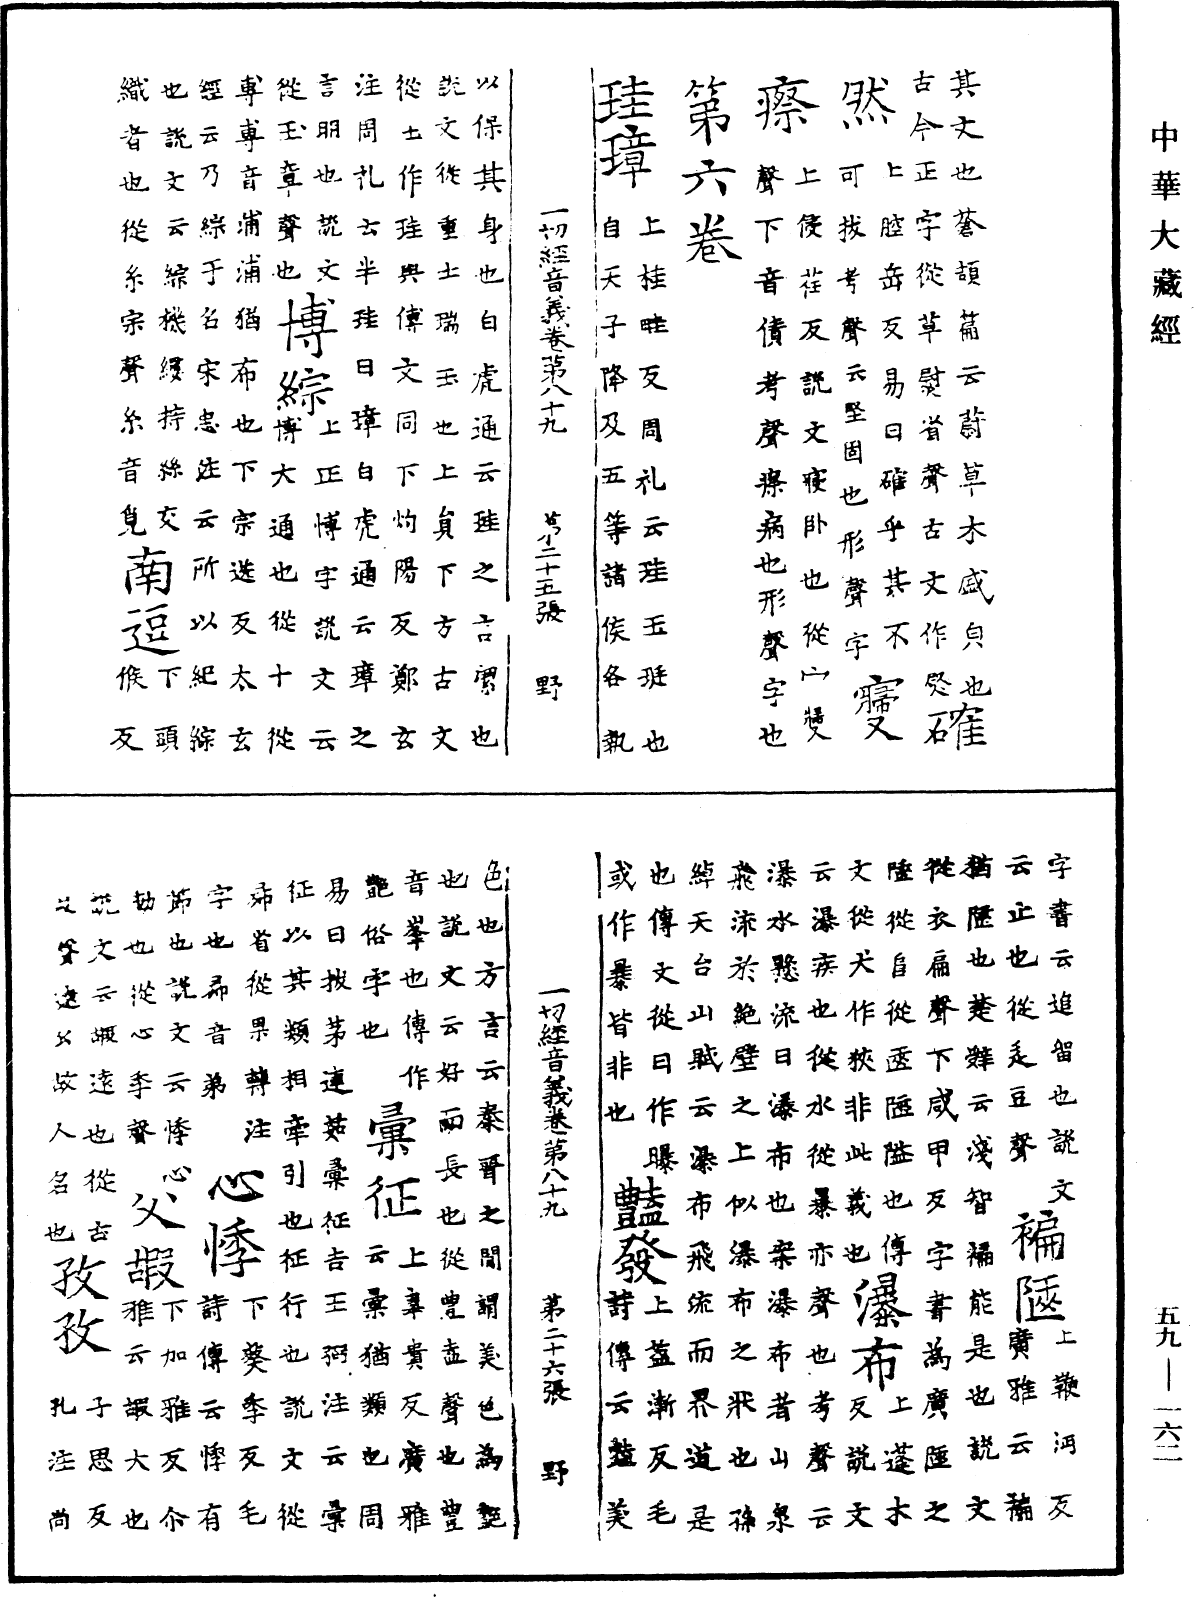 中華大藏經
其文也蒼頡篇云蔚草木盛皃也確
古今正字從草熨省聲古文作㷉
然 上腔岳反易曰確乎其不
可拔考聲云堅固也形聲字 寱
瘵 上侵荏反說文寑臥也從宀㝱
聲下音債考聲瘵病也形聲字也
第六卷
珪璋 上桂畦反周礼云珪玉珽也
自天子降及五等諸侯各執
一切經音義卷第八十九 第二十五張 野
以保其身也白虎通云珪之言潔也
說文從重土瑞玉也上皃下方古文
從土作珪與傳文同下灼陽反鄭玄
注周礼云半珪曰璋白虎通云璋之
言明也說文 上正博字說文云
從玉章聲也 博綜 博大通也從十從
尃尃音浦浦猶布也下宗送反太玄
經云乃綜于名宋忠注云所以紀綜
也說文云綜機縷持絲交 下頭
織者也從糸宗聲糸音覓 南逗 候反
字書云逗留也說文 上鞭沔反
云止也從辵豆聲 褊陿 廣雅云褊
猶陿也楚辭云淺智褊能是也說文
從衣扁聲下咸甲反字書為廣陿之
陿從𨸏從匧陿隘也傳 上蓬木
文從犬作狹非此義也 瀑布 反說文
云瀑疾也從水從暴亦聲也考聲云
瀑水懸流曰瀑布也案瀑布者山泉
飛流於絕壁之上似瀑布之狀也孫
綽天台山賦云瀑布飛流而界道是
也傳文從日作曝 上葢漸反毛
或作暴皆非也 豔發 詩傳云豔美
一切經音義卷第八十九 第二十六張 野
色也方言云秦晉之間謂美色為豔
也說文云好而長也從豐盍聲也豐
音峯也傳作 上韋貴反廣雅
艷俗字也 彙征 云彙猶類也周
易曰拔茅連茹彙征吉王弼注云彙
征以其類相牽引也征行也說文從
𢁥省從果轉注 下葵季反毛
字也𢁥音弟 心悸 詩傳云悸有
節也說文云悸心 下加雅反尒
動也從心季聲 父嘏 雅云嘏大也
說文云嘏遠也從古 子思反
叚聲遠公故人名也 孜孜 孔注尚
五九—一六二